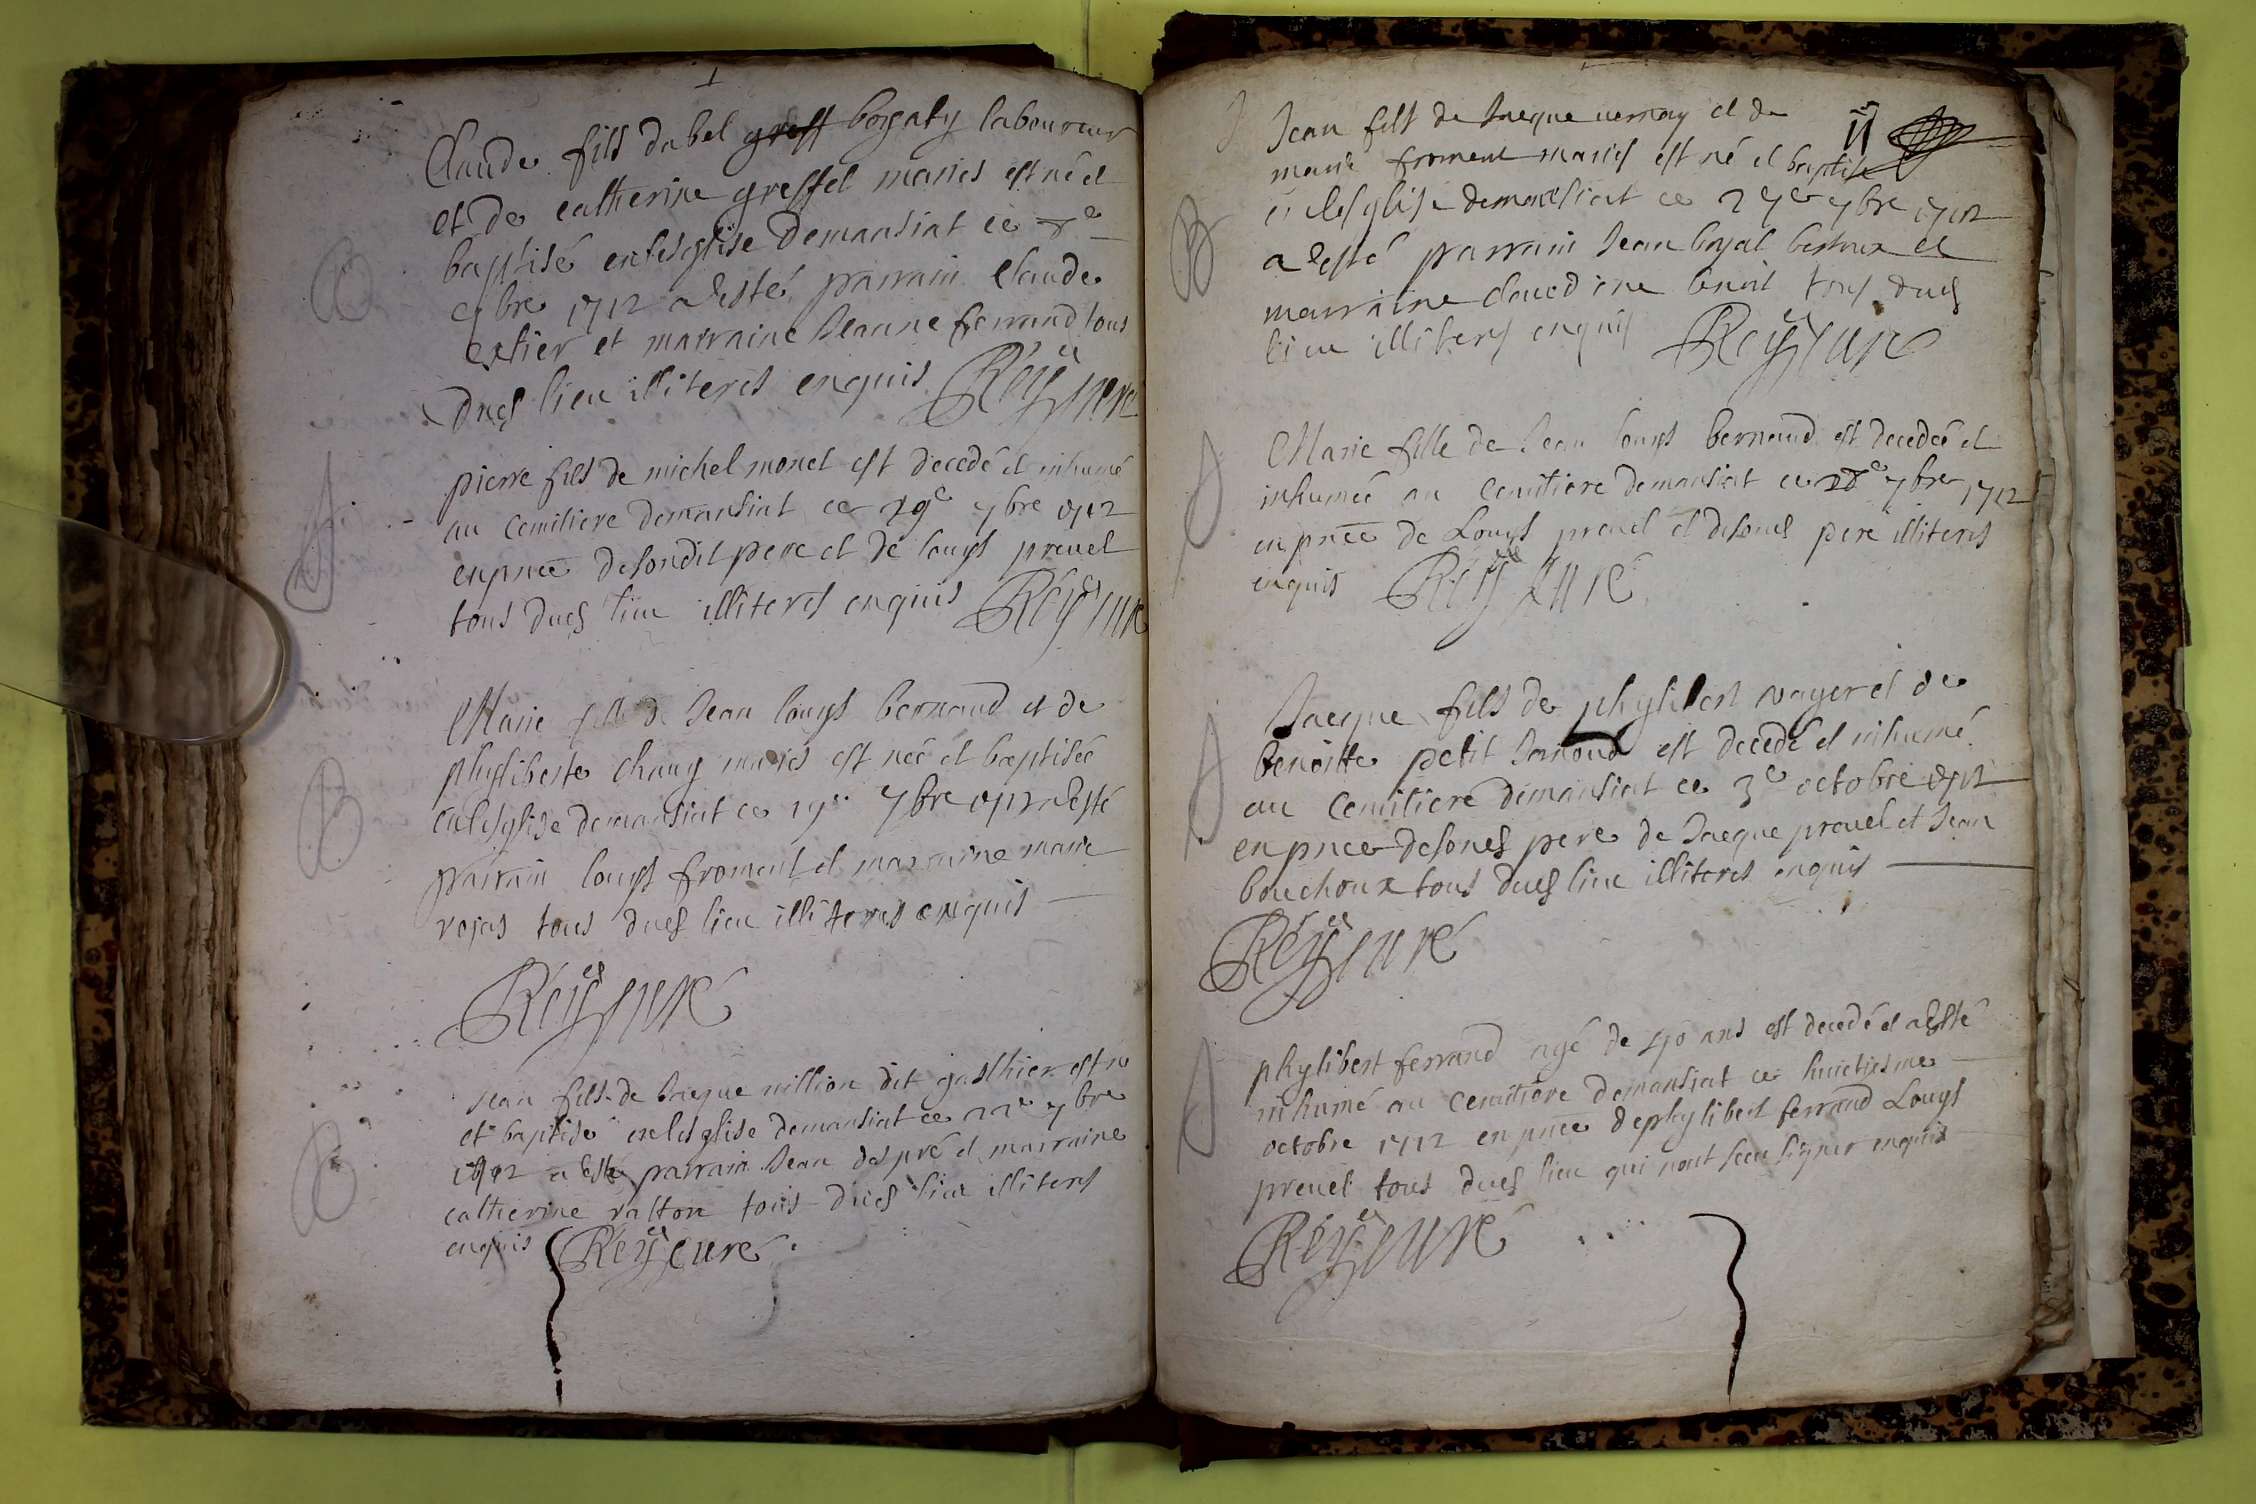 Claude fils dabel greff borgaty laboureur
et de catherine greffet maries est né et
baptisé en lesglise demansiat ce 8e
7bre 1712 a esté parrain Claude
et marraine Jeanne ferrand tous
dues lieu illiterés enquis Reÿ curé
B
pierre fils de michel monet est decedé et inhumé
au cemitiere demansiat ce 19e 7bre 1712
en pnce desondit pere et de louys prevel
tous dues lieu illiterés enquis Reÿ curé
Marie fille de Jean louys bernaud et de
phyliberte chany maries est neé et baptiseé
en lesglise demansiat ce 19e 7bre 1712 a esté
parrain louys froment et marraine marie
rojas tous dues lieu illiterés enquis
B
Reÿ curé
Jean fils de Jacque million dit gasthier est né
et baptisé en lesglise demansiat ce 22e 7bre
1712 a esté parrain Jean despré et marraine
catherine ralton touts dues lieu illiterés
enquis Reÿ curé
B
11
Jean fils de Jacque vernay et de
marie froment maries est né et baptisé
en lesglise demansiat ce 27e 7bre 1712
a esté parrain Jean loyal et
marraine claudine benoit tous dues
lieu illiterés enquis Reÿ curé
B
Marie fille de Jean louys bernaud est decedeé et
inhumeé au cemitiere demansiat ce 28e 7bre 1712
en pnce de Louys prevel et desoncs pere illiterés
enquis Reÿ curé
Jacque fils de phylibert vayer et de
benoitte petit Jarnoud est decedé et inhumé
au cemitiere demansiat ce 3e octobre 1712
en pnce desoncs pere de Jacque prevel et Jean
bouchoux tous dues lieu illiterés enquis
Reÿ curé
phylibert ferrand agé de 40 ans est decedé et a Esté
inhumé au cemitiere demansiat ce huictiesme
octobre 1712 en pnce dephylibert ferrand Louys
prevel tous dues lieu qui nont sceu signer enquis
Reÿ curé